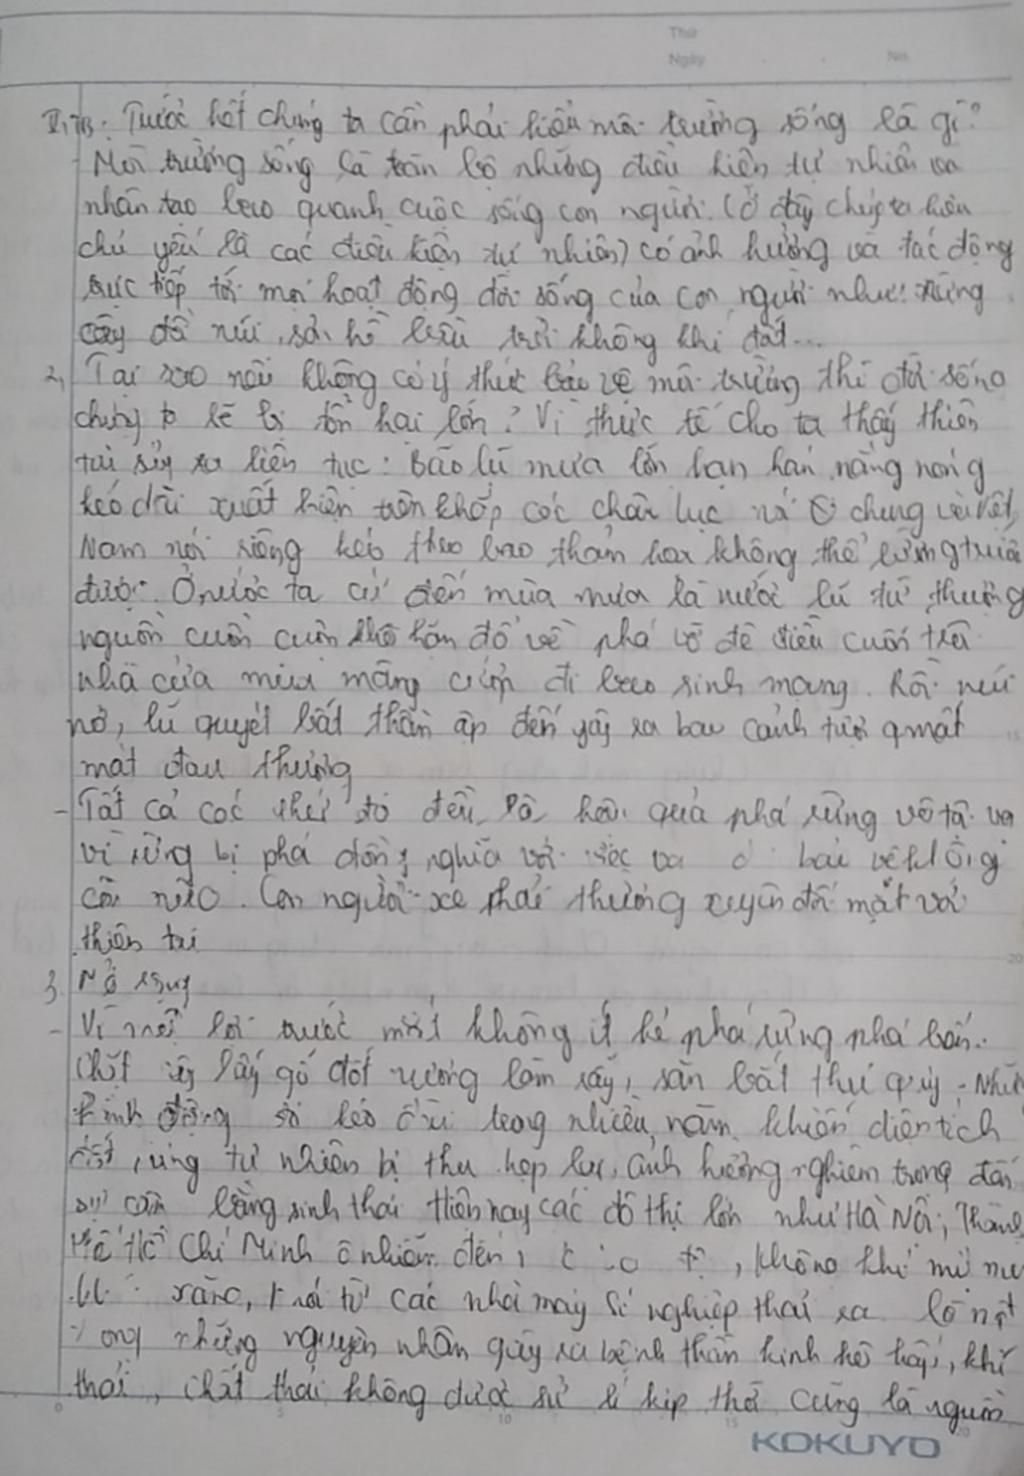 Thứ
Ngày No.
II, TB. Trước hết chúng ta cần phải hiểu môi trường sống là gì?
- Môi trường sống là toàn bộ những điều kiện tự nhiên và
nhân tạo bao quanh cuộc sống con người. (ở đây chúng ta hiểu
chủ yếu là các điều kiện tự nhiên) có ảnh hưởng và tác động
trực tiếp tới mọi hoạt động đời sống của con người như: rừng
cây đồi núi, sông hồ bầu trời không khí đất...
2, Tại sao nếu không có ý thức bảo vệ môi trường thì đời sống
chúng ta sẽ bị tổn hại lớn? Vì thực tế cho ta thấy thiên
tai sảy ra liên tục: Bão lũ mưa lớn hạn hán nắng nóng
kéo dài xuất hiện trên khắp các châu lục nói chung và Việt
Nam nói riêng kéo theo bao thảm hoạ không thể lường trước
được. Ở nước ta cứ đến mùa mưa là nước lũ từ thượng
nguồn cuồn cuộn đổ về phá vỡ đê điều cuốn trôi
nhà cửa mùa màng cướp đi bao sinh mạng. Rồi núi
nở, lũ quyét bất thần ập đến gây ra bao cảnh tượng mất
mát đau thương
- Tất cả các thứ đó đều là hậu quả phá rừng vô tội vạ
vì rừng bị phá đồng nghĩa với việc bảo vệ gì
còn nữa. Con người sẽ phải thường xuyên đối mặt với
thiên tai
3. Mở rộng
- Vì mối lợi trước mắt không ít kẻ phá rừng phá
Chặt cây lấy gỗ đốt nương làm rẫy, săn bắt thú quý. Những
hành động kéo dài trong nhiều năm khiến diện tích
đất rừng tự nhiên bị thu hẹp lại, ảnh hưởng nghiêm trọng đến
sự cân bằng sinh thái Hiện nay các đô thị lớn như Hà Nội, Thành
Phố Hồ Chí Minh ô nhiễm đến, không khí mù mịt
xăng, khói từ các nhà máy sí nghiệp thải ra là một
trong những nguyên nhân gây ra bệnh thần kinh hô hấp, khí
thải, chất thải không được sử lí kịp thời cũng là nguồn
0 5 10 15 20
KOKUYO